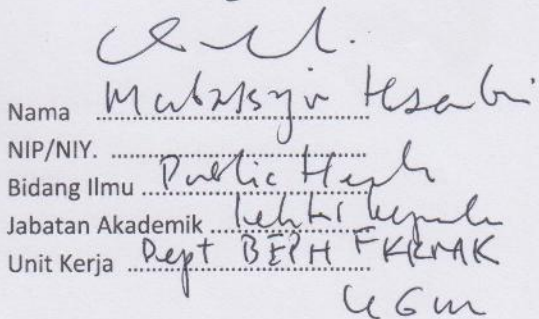 Nama
NIP/NIY. ........................
Bidang Ilmu Public Health
Jabatan Akademik Lektor Kepala
Unit Kerja Dept BEPH FKKMK
UGM